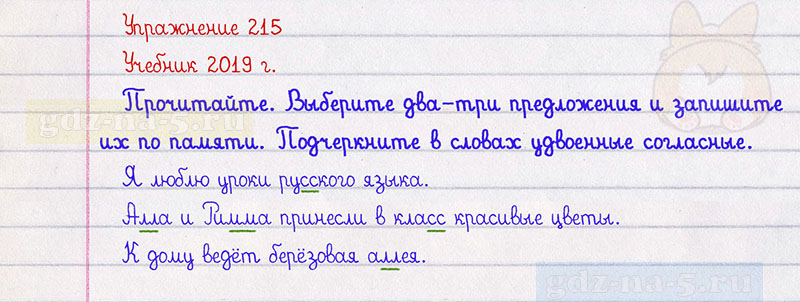 Упражнение 215
Учебник 2019 г.
Прочитайте. Выберите два-три предложения и запишите
их по памяти. Подчеркните в словах удвоенные согласные.
Я люблю уроки русского языка.
Алла и Римма принесли в класс красивые цветы.
К дому ведёт берёзовая аллея.
gdz-na-5.ru
gdz-na-5.ru